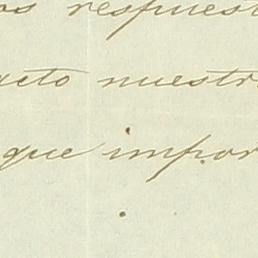 os respuest
acto nuestr
que impor